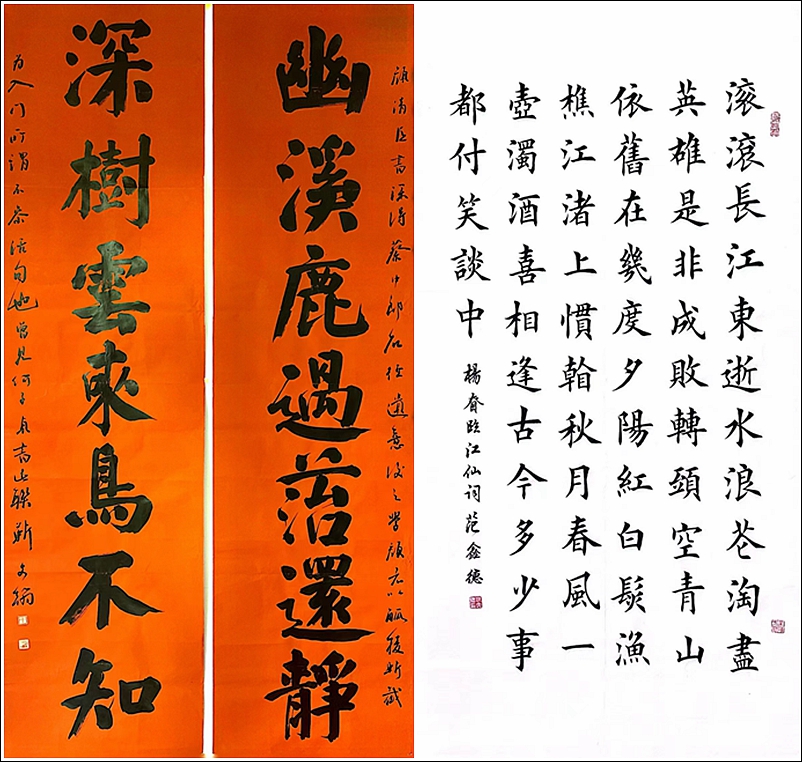 幽溪鹿過苔還靜
顏清臣書深得蔡中郎石經遺意後之學顏者以觚稜斬截
深樹雲來鳥不知
為入門所謂不參活句也曾見何子貞書此聯靳文翰
滚滾長江東逝水浪花淘盡
英雄是非成敗轉頭空青山
依舊在幾度夕陽紅白髮漁
樵江渚上慣看秋月春風一
壺濁酒喜相逢古今多少事
都付笑談中
楊昚臨江仙詞范鑫德